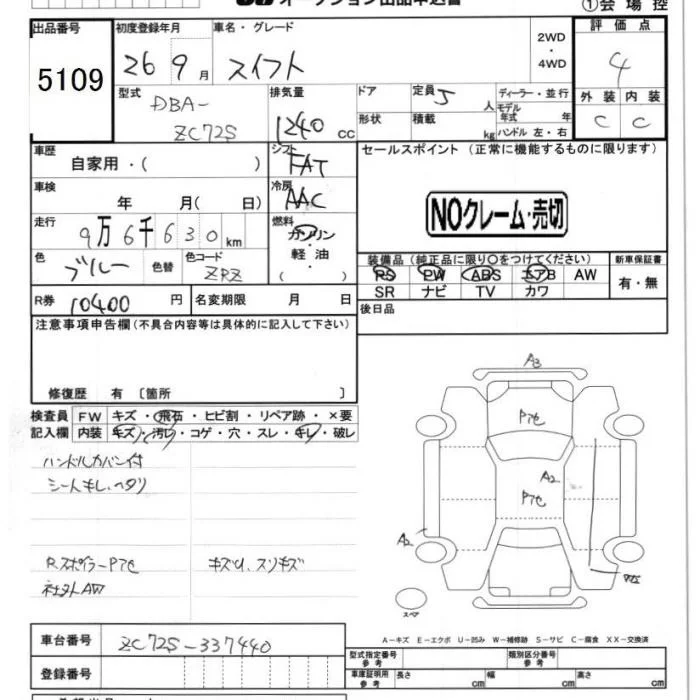 オークション出品申込書
①会場控
出品番号
5109
初度登録年月
26 9月
車名・グレード
スイフト
2WD
・
4WD
評価点
4
型式
DBA-
ZC72S
排気量
1240 cc
ドア
形状
定員 5 人
積載 kg
ディーラー・並行
モデル
年式 年
ハンドル 左・右
外装 内装
C C
車歴
自家用・( )
シフト
FAT
セールスポイント (正常に機能するものに限ります)
車検
年 月( 日)
冷房
AAC
NOクレーム・売切
走行
9万6千630km
燃料
ガソリン
・
軽油
( )
色
ブルー
色替
色コード
ZRZ
装備品 (純正品に限り○をつけてください)
PS PW ABS エアB AW
SR ナビ TV カワ
新車保証書
有・無
R券 10400 円
名変期限 月 日
後日品
注意事項申告欄 (不具合内容等は具体的に記入して下さい)
修復歴 有 〔箇所 〕
検査員
記入欄
FW キズ・飛石・ヒビ割・リペア跡・×要
内装 キズ・汚レ・コゲ・穴・スレ・キレ・破レ
ハンドルカバー付
シートキレ、ヘタリ
Rスポイラー P7セ
キズU、スリキズ
社外AW
A3
P7セ
A2
P7セ
A2
スペア
A-キズ E-エクボ U-凹み W-補修跡 S-サビ C-腐食 XX-交換済
車台番号
ZC72S-337440
登録番号
型式指定番号
参考
類別区分番号
参考
車庫証明用
参考
長さ cm 幅 cm 高さ cm